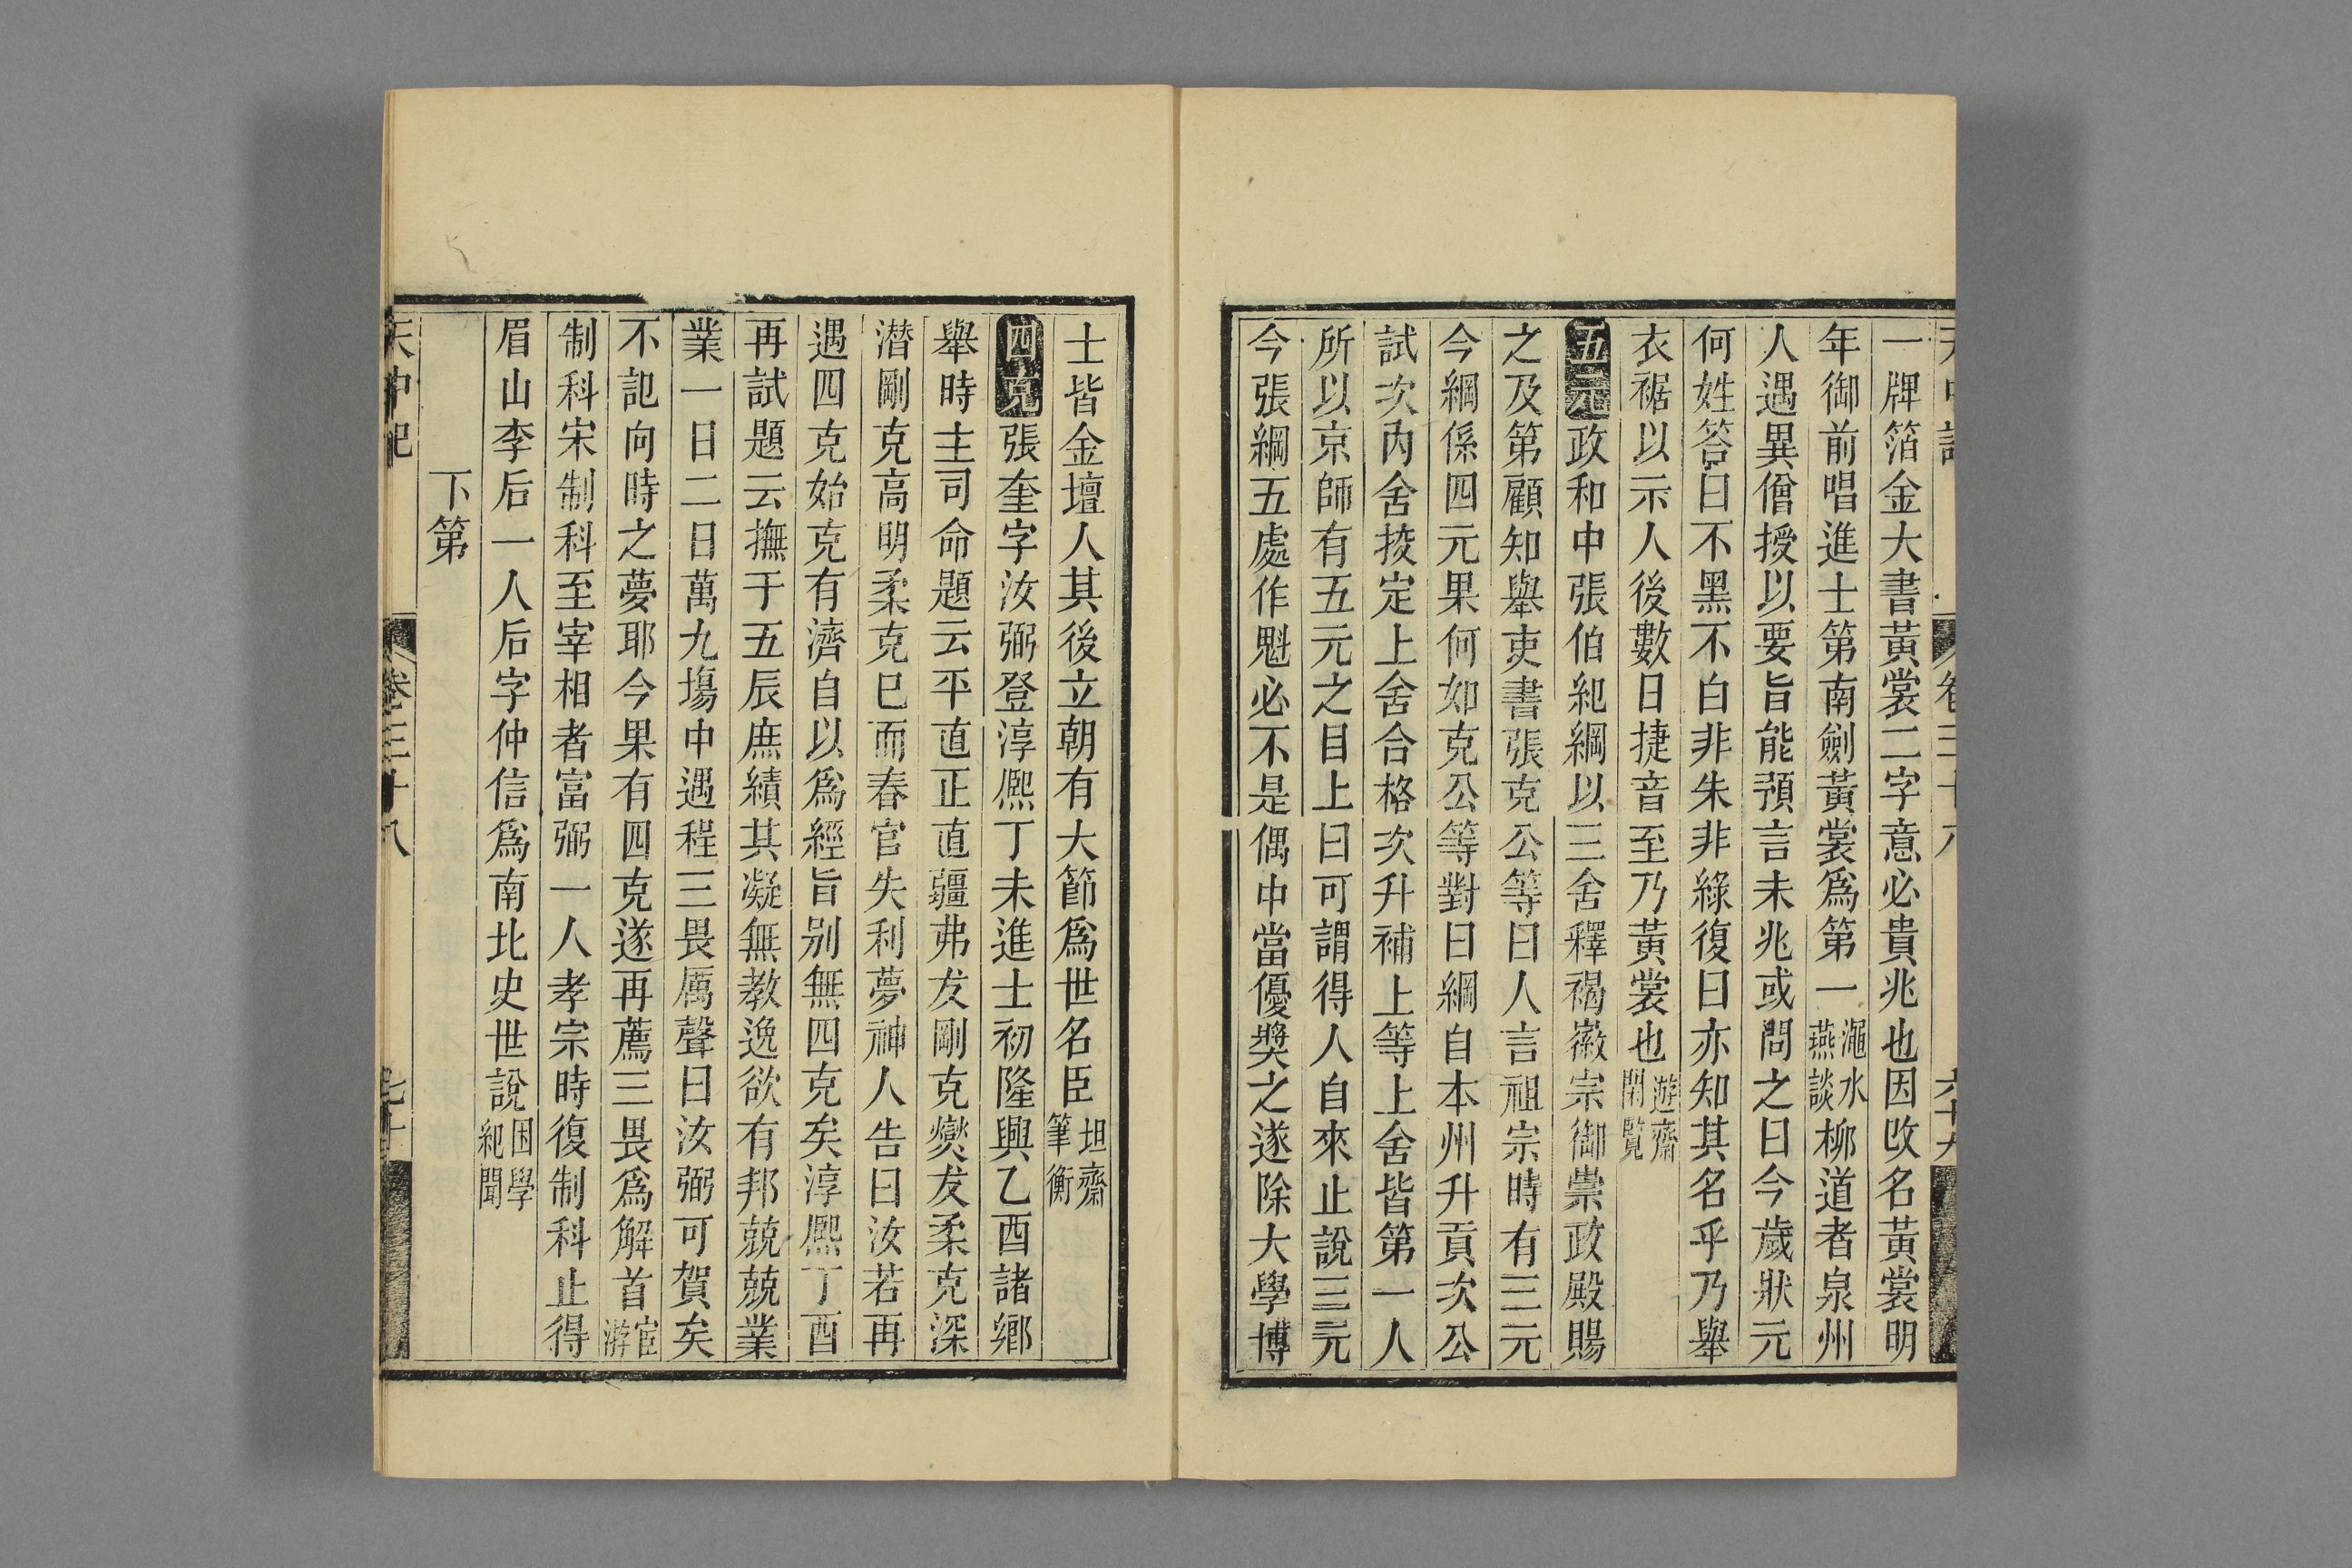 一牌箔金大書黃裳二字意必貴兆也因改名黃裳明
年御前唱進士第南劍黃裳爲第一澠水燕談柳道者泉州
人遇異僧授以要旨能預言未兆或問之曰今歲狀元
何姓答曰不黑不白非朱非綠復曰亦知其名乎乃舉
衣裾以示人後數日捷音至乃黃裳也遊齋閑覧
五元政和中張伯紀綱以三舍釋褐徽宗御崇政殿賜
之及第顧知舉吏書張克公等曰人言祖宗時有三元
今綱係四元果何如克公等對曰綱自本州升貢次公
試次內舍挍定上舍合格次升補上等上舍皆第一人
所以京師有五元之目上曰可謂得人自來止說三元
今張綱五處作魁必不是偶中當優奬之遂除大學博
士皆金壇人其後立朝有大節爲世名臣坦齋筆衡
四克張奎字汝弼登淳熈丁未進士初隆興乙酉諸鄉
舉時主司命題云平直正直疆弗友剛克燮友柔克深
潜剛克高明柔克巳而春官失利夢神人告曰汝若再
遇四克始克有濟自以爲經旨别無四克矣淳熈丁酉
再試題云撫于五辰庶績其凝無教逸欲有邦兢兢業
業一日二日萬九塲中遇程三畏厲聲曰汝弼可賀矣
不記向時之夢耶今果有四克遂再薦三畏爲解首宦游
制科宋制科至宰相者富弼一人孝宗時復制科止得
眉山李后一人后字仲信爲南北史世說困學紀聞
下第
天中記 卷三十八 七十